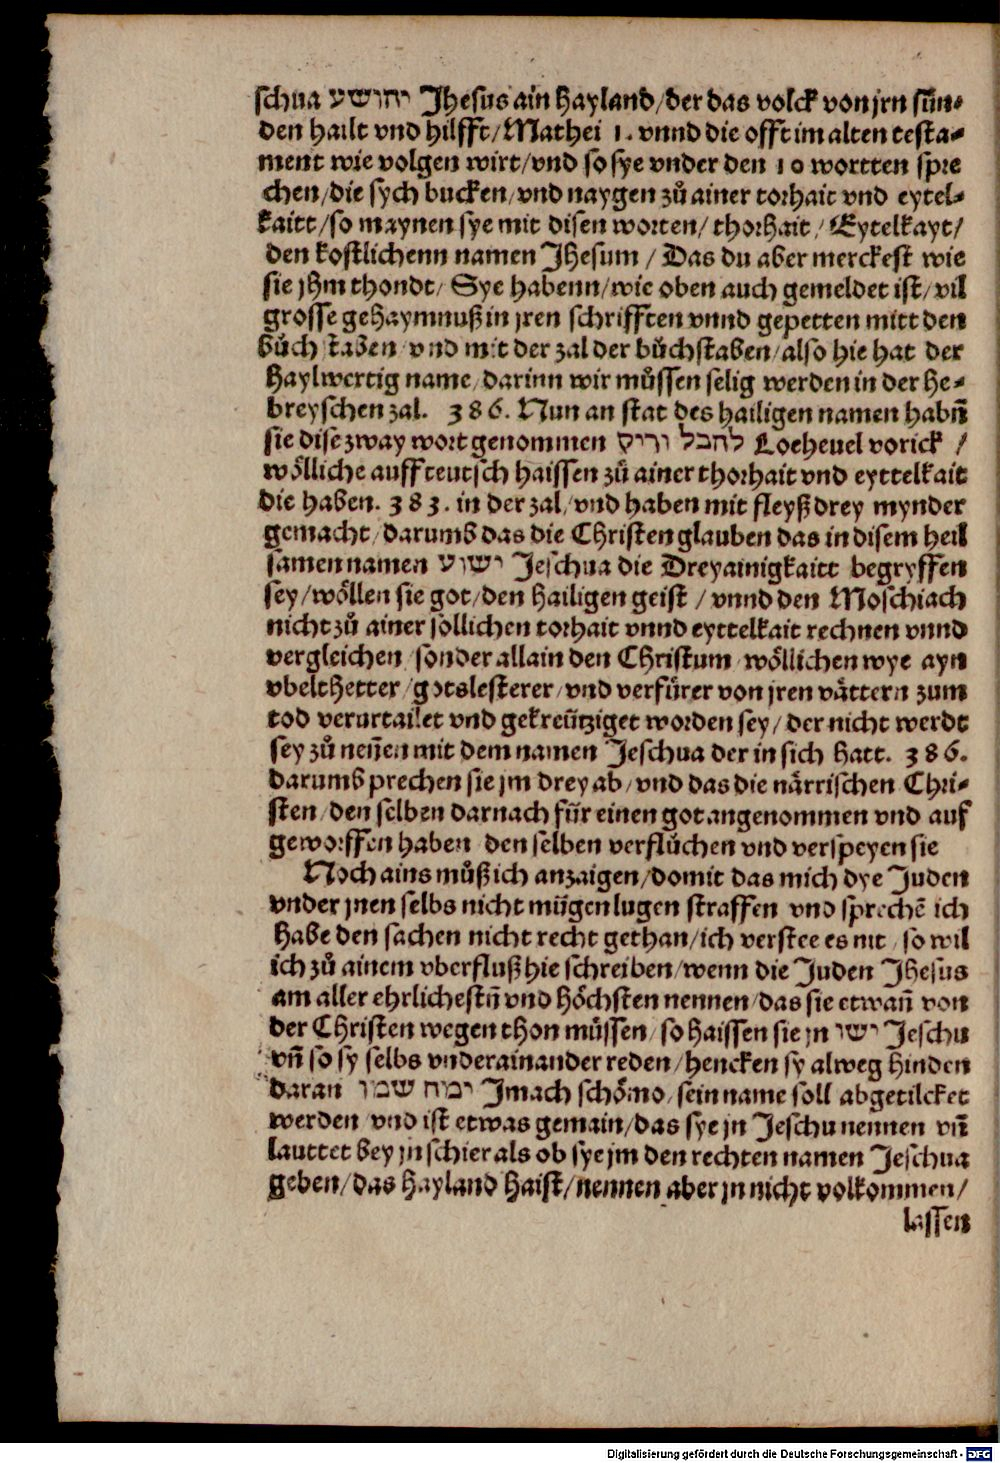 schua יהושע Jhesus ain hayland/der das volck von jrn sün-
den hailt vnd hilfft/Mathei 1. vnnd die offt im alten testa-
ment wie volgen wirt/vnd so sye vnder den 10 wortten spre
chen/die sych bucken/vnd naygen zů ainer torhait vnd eytel-
kaitt/so maynen sye mit disen worten/ thorhait/Eytelkayt/
den kostlichenn namen Jhesum / Das du aber merckest wie
sie jhm thondt/ Sye habenn/wie oben auch gemeldet ist/vil
grosse gehaymnuß in jren schrifften vnnd gepetten mitt den
bůch staben/vnd mit der zal der bůchstaben/also hie hat der
haylwertig name/darinn wir můssen selig werden in der he-
breyschen zal. 386. Nun an stat des hailigen namen habñ
sie dise zway wort genommen להבל וריק Loehevel vorick /
wölliche auff teutsch haissen zů ainer thorhait vnd eyttelkait
die haben. 383. in der zal/vnd haben mit fleyß drey mynder
gemacht/darumb das die Christen glauben das in disem heil
samen namen ישוע Jeschua die Dreyainigkaitt begryffen
sey/wöllen sie got/den hailigen geist / vnnd den Moschiach
nicht zů ainer sollichen torhait vnnd eyttelkait rechnen vnnd
vergleichen/sonder allain den Christum/wöllichen wye ayn
vbelthetter/gotslesterer/vnd verfürer von jren vättern zum
tod verurtailet vnd gekreütziget worden sey/der nicht werdt
sey zů neñen mit dem namen Jeschua der in sich hatt. 386.
darumb prechen sie jm drey ab/vnd das die närrischen Chri-
sten/den selben darnach für einen got angenommen vnd auf
geworffen haben den selben verflůchen vnd verspeyen sie
Noch ains můß ich anzaigen/domit das mich dye Juden
vnder jnen selbs nicht mügen lugen straffen vnd sprechē ich
habe den sachen nicht recht gethan/ich verstee es nit/so wil
ich zů ainem vberfluß hie schreiben/wenn die Juden Jhesus
am aller ehrlichestñ vnd höchsten nennen/das sie etwañ von
der Christen wegen thon müssen/so haissen sie jn ישו Jeschu
vñ so sy selbs vnderainander reden/hencken sy alweg hinden
daran ימח שמו Jmach schömo/sein name soll abgetilcket
werden vnd ist etwas gemain/das sye jn Jeschu nennen vñ
lauttet bey jn schier als ob sye jm den rechten namen Jeschua
geben/das hayland haist/nennen aber jn nicht volkommen/
lassen
Digitalisierung gefördert durch die Deutsche Forschungsgemeinschaft - DFG